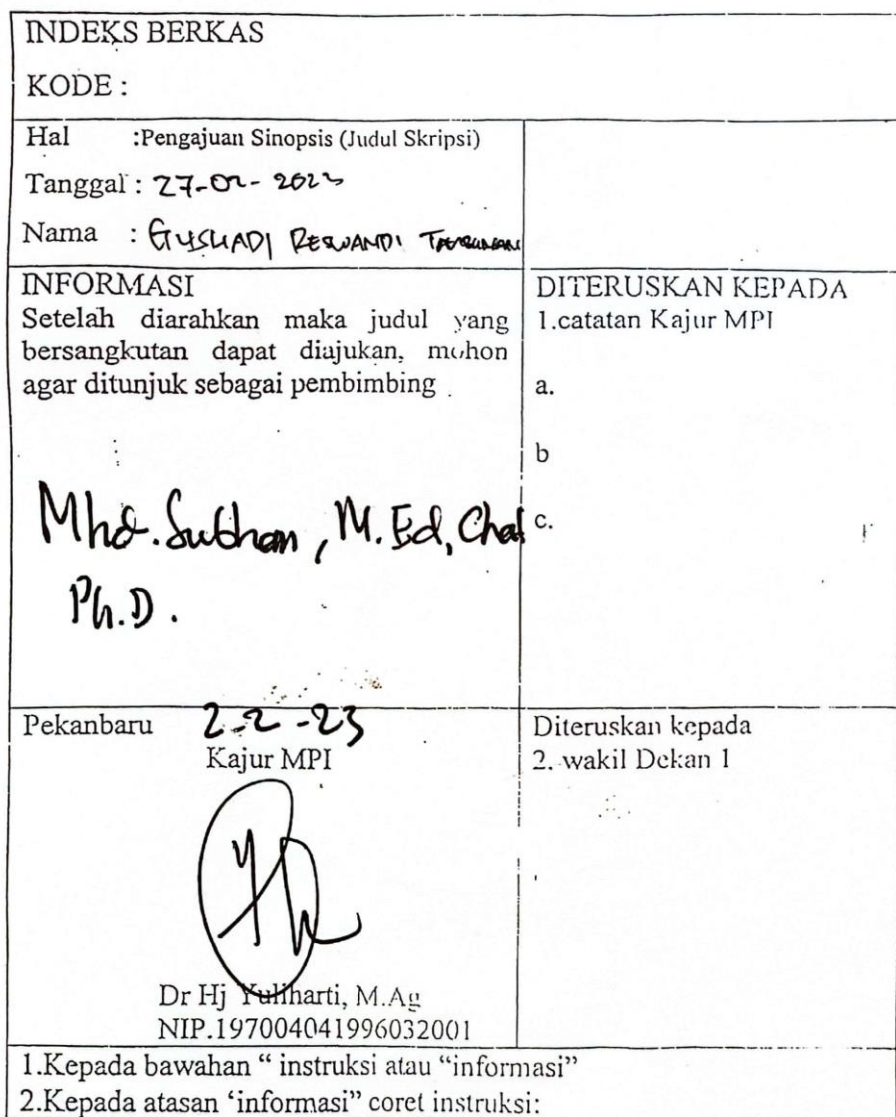 INDEKS BERKAS
KODE :
Hal :Pengajuan Sinopsis (Judul Skripsi)
Tanggal : 27-02-2023
Nama : GUSHADI RESWANDI
INFORMASI
Setelah diarahkan maka judul yang
bersangkutan dapat diajukan, mohon
agar ditunjuk sebagai pembimbing
Mhd. Subhan, M.Ed,
Ph.D.
DITERUSKAN KEPADA
1.catatan Kajur MPI
a.
b
c.
Pekanbaru 2-2-23
Kajur MPI
Dr Hj Yuliharti, M.Ag
NIP.197004041996032001
Diteruskan kepada
2. wakil Dekan 1
1.Kepada bawahan “ instruksi atau “informasi”
2.Kepada atasan ‘informasi” coret instruksi: